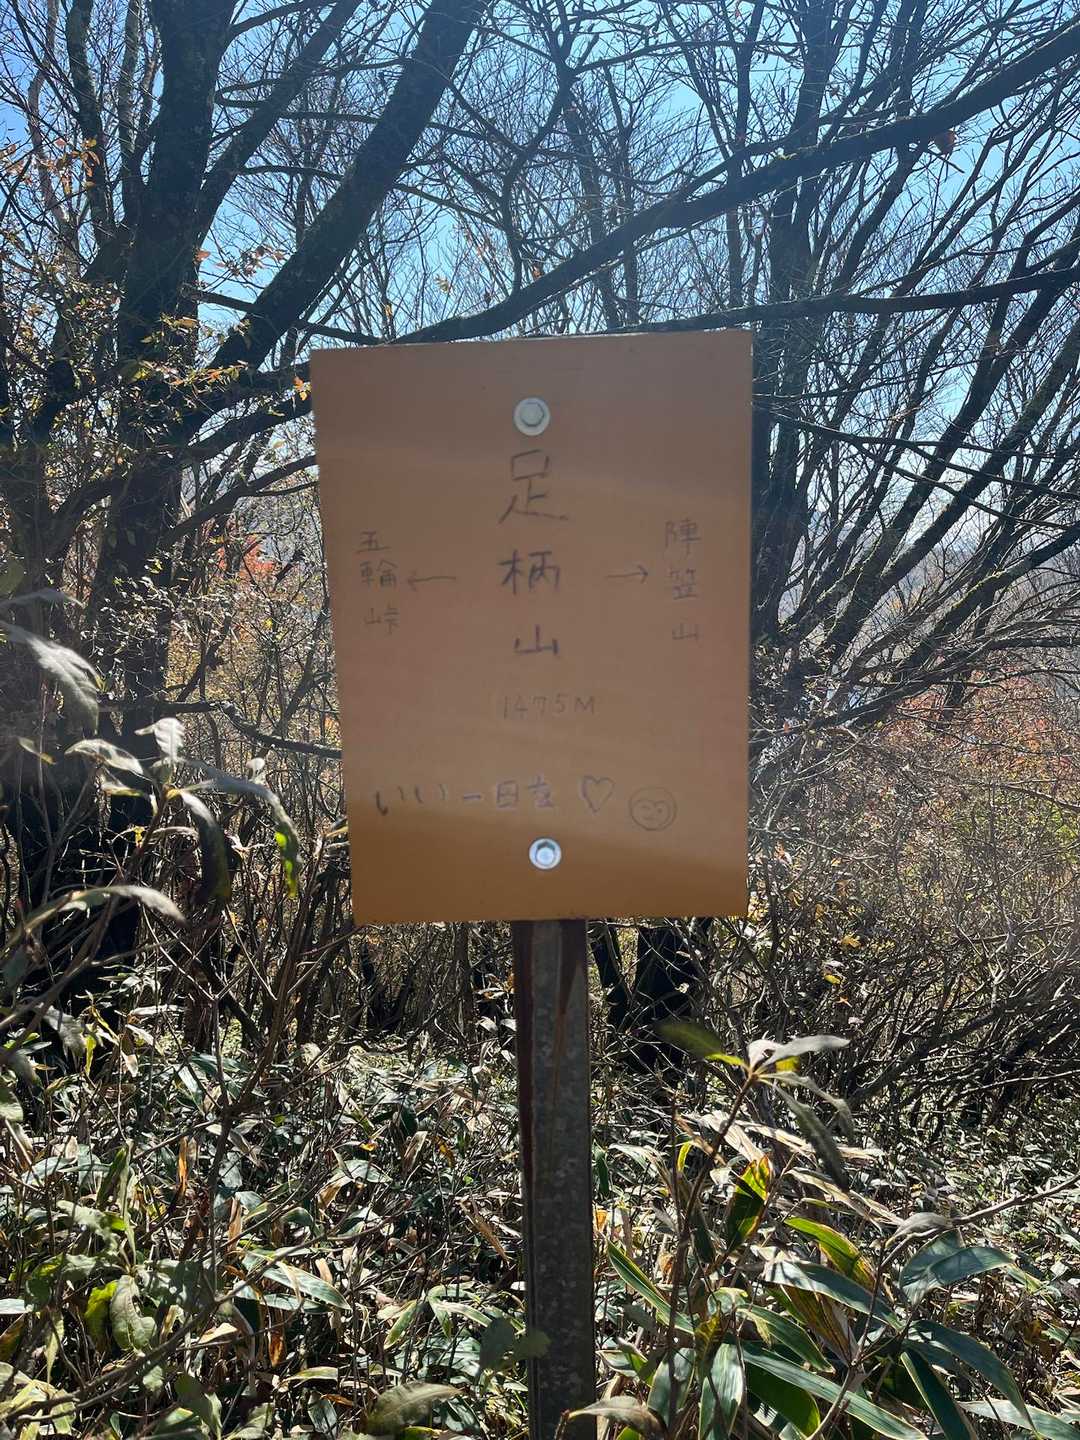 足柄山
五輪峠 ←
→ 陣笠山
1475M
いい一日を♡